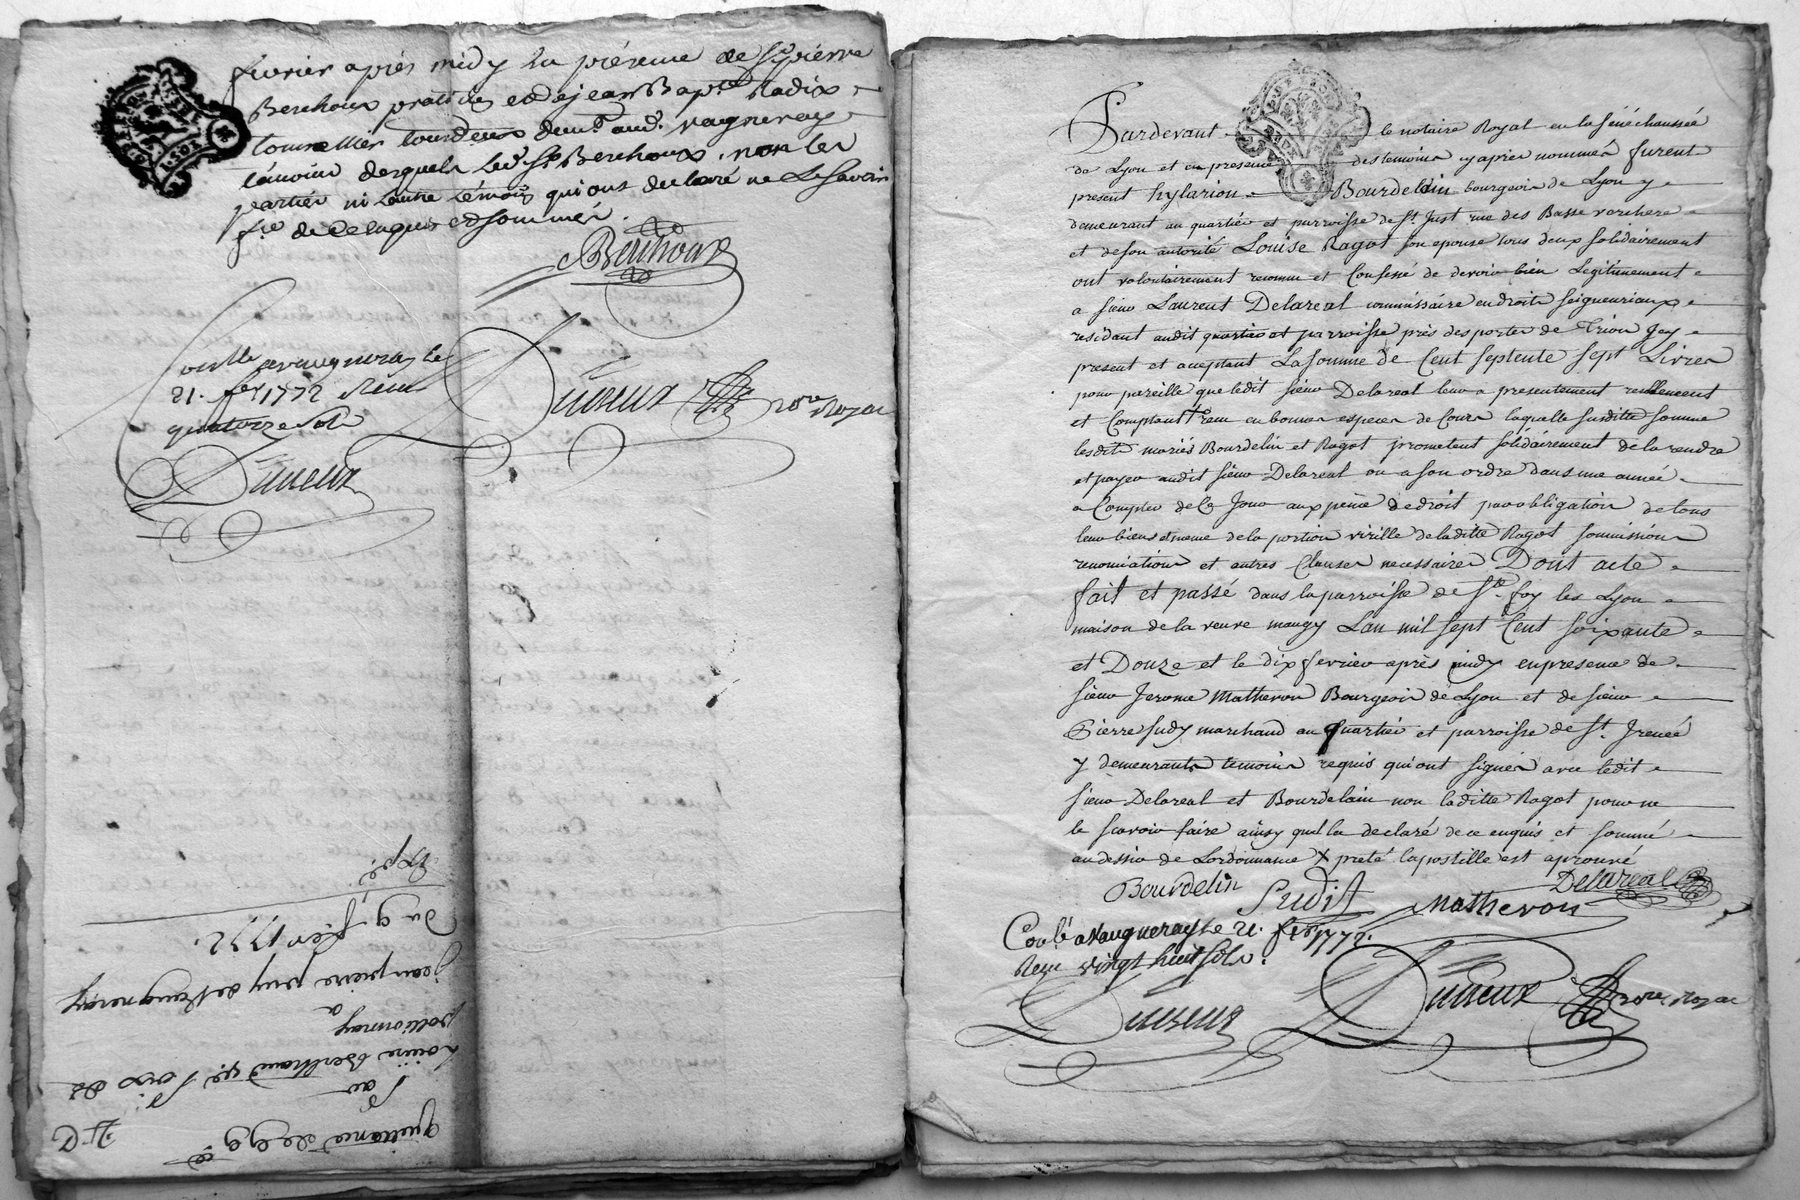 fevrier après midy en présence de Sr pierre
Berchoux praticien et de jean Bapte Radix
tonnellier tous deux demt. aud. vaugneray
témoins desquels led. Sr Berchoux. non les
parties ni l'autre témoin qui ont declaré ne le savoir
fre de ce enquis et sommés.
Berchoux
Conllé a vaugneray le
21. fer 1772 Reçu
quatorze sols
Dutreux
Dutreux nore Royal
Expé.
du 9. fer 1772.
jean pierre puy de Vaugneray
a
pollionnay
Louise Berthaud
Par
quittance de 99 #
Pardevant le notaire Royal en la sénéchaussée
de Lyon et en presence des temoins cy après nommés furent
present hylarion Bourdelin bourgeois de Lyon y
demeurant au quartié et parroisse de St. Just rue des Basse verchere
et de son autorité Louise Ragot son epouse tous deux solidairement
ont volontairement reconnu et Confessé de devoir bien Legitimement
a sieur Laurent Delareal commissaire en droits seigneuriaux
residant audit quartier et parroisse près des portes de Trion Jcy
present et aceptant La somme de Cent septente sept Livres
pour pareille que ledit sieur Delareal leur a presentement reellement
et Comptant + remi en bonnes especes de Cours laquelle susditte somme
lesdits mariés Bourdelin et Ragot prometent solidairement de la rendre
et payer audit sieur Delareal ou a son ordre dans une année
a Compter de Ce Jour aux peine de droit par obligation de tous
leur biens et meme de la portion virille de laditte Ragot soumissions
renonciations et autres Clauses necessaires Dont acte
fait et passé dans la parroisse de Ste. foy les Lyon
maison de la veuve maugy Lan mil sept Cent soixante
et Douze et le dix fevrier après midy en presence de
sieur Jerome Matheron Bourgeois de Lyon et de sieur
Pierre Sudy marchand au quartié et parroisse de St. Jrenée
y demeurants temoins requis qui ont signés avec ledit
sieur Delareal et Bourdelain non laditte Ragot pour ne
le scavoir faire ainsy quel la declaré de ce enquis et sommé
au desir de Lordonnance + preté lapostille est aprouvé
Bourdelin Sudit Matheron Delareal
Conlé a Vaugneray le 21. fer 1772.
Reçu vingt huit sols.
Dutreux
Dutreux nore Royal